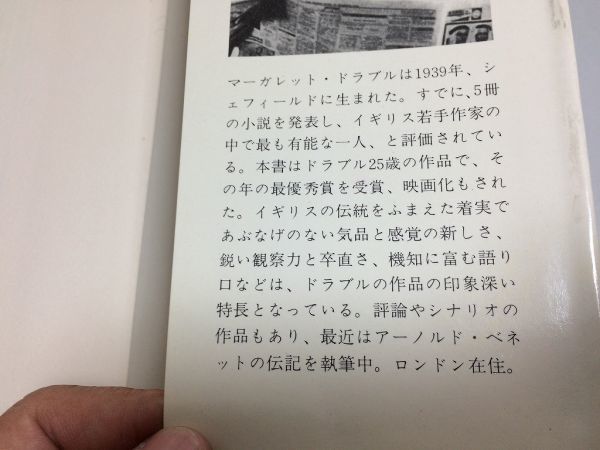 マーガレット・ドラブルは1939年、シ
ェフィールドに生まれた。すでに、5冊
の小説を発表し、イギリス若手作家の
中で最も有能な一人、と評価されてい
る。本書はドラブル25歳の作品で、そ
の年の最優秀賞を受賞、映画化もされ
た。イギリスの伝統をふまえた着実で
あぶなげのない気品と感覚の新しさ、
鋭い観察力と卒直さ、機知に富む語り
口などは、ドラブルの作品の印象深い
特長となっている。評論やシナリオの
作品もあり、最近はアーノルド・ベネ
ットの伝記を執筆中。ロンドン在住。